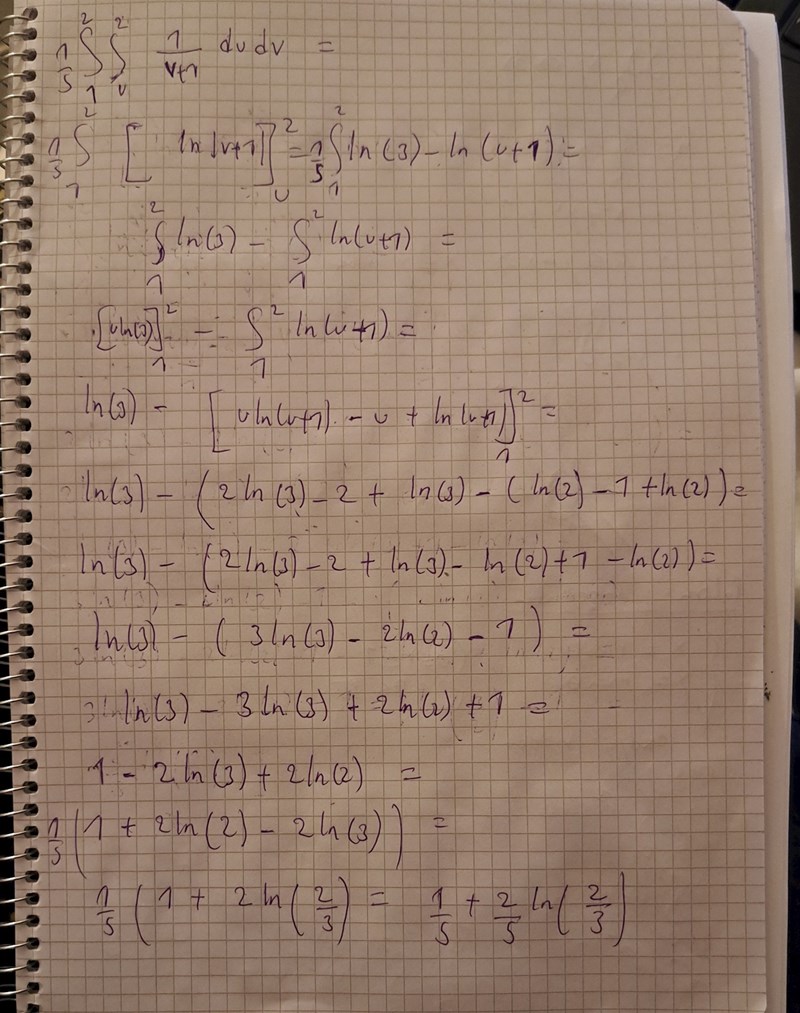 1/5 ∫₁² ∫ᵤ² 1/(v+1) dv dv =
1/5 ∫₁² [ ln|v+1| ]ᵤ² = 1/5 ∫₁² ln(3) - ln(u+1) =
∫₁² ln(3) - ∫₁² ln(u+1) =
[u ln(3)]₁² - ∫₁² ln(u+1) =
ln(3) - [ u ln(u+1) - u + ln(u+1) ]₁² =
ln(3) - ( 2 ln(3) - 2 + ln(3) - ( ln(2) - 1 + ln(2) ) =
ln(3) - ( 2 ln(3) - 2 + ln(3) - ln(2) + 1 - ln(2) ) =
ln(3) - ( 3 ln(3) - 2 ln(2) - 1 ) =
ln(3) - 3 ln(3) + 2 ln(2) + 1 =
1 - 2 ln(3) + 2 ln(2) =
1/5 ( 1 + 2 ln(2) - 2 ln(3) ) =
1/5 ( 1 + 2 ln( 2/3 ) = 1/5 + 2/5 ln( 2/3 )